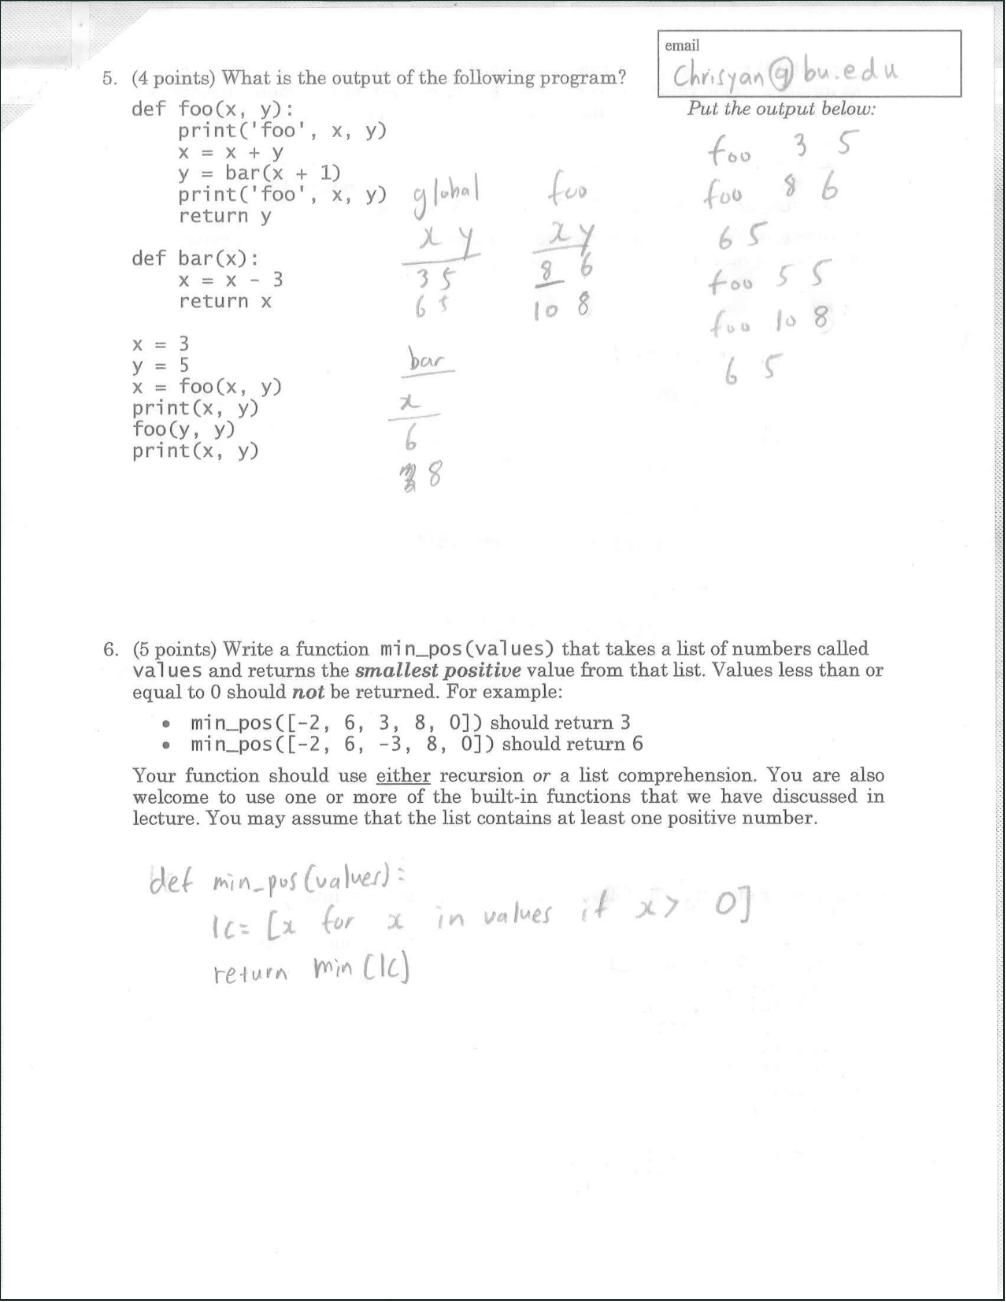 email
Chrisyan@bu.edu
5. (4 points) What is the output of the following program?
Put the output below:
def foo(x, y):
    print('foo', x, y)
    x = x + y
    y = bar(x + 1)
    print('foo', x, y)
    return y
def bar(x):
    x = x - 3
    return x
x = 3
y = 5
x = foo(x, y)
print(x, y)
foo(y, y)
print(x, y)
global
x y
3 5
6 5
foo
x y
8 6
10 8
bar
x
6
8
foo 3 5
foo 8 6
6 5
foo 5 5
foo 10 8
6 5
6. (5 points) Write a function min_pos(values) that takes a list of numbers called
values and returns the smallest positive value from that list. Values less than or
equal to 0 should not be returned. For example:
• min_pos([-2, 6, 3, 8, 0]) should return 3
• min_pos([-2, 6, -3, 8, 0]) should return 6
Your function should use either recursion or a list comprehension. You are also
welcome to use one or more of the built-in functions that we have discussed in
lecture. You may assume that the list contains at least one positive number.
def min_pos(values):
    lc= [x for x in values if x> 0]
    return min(lc)